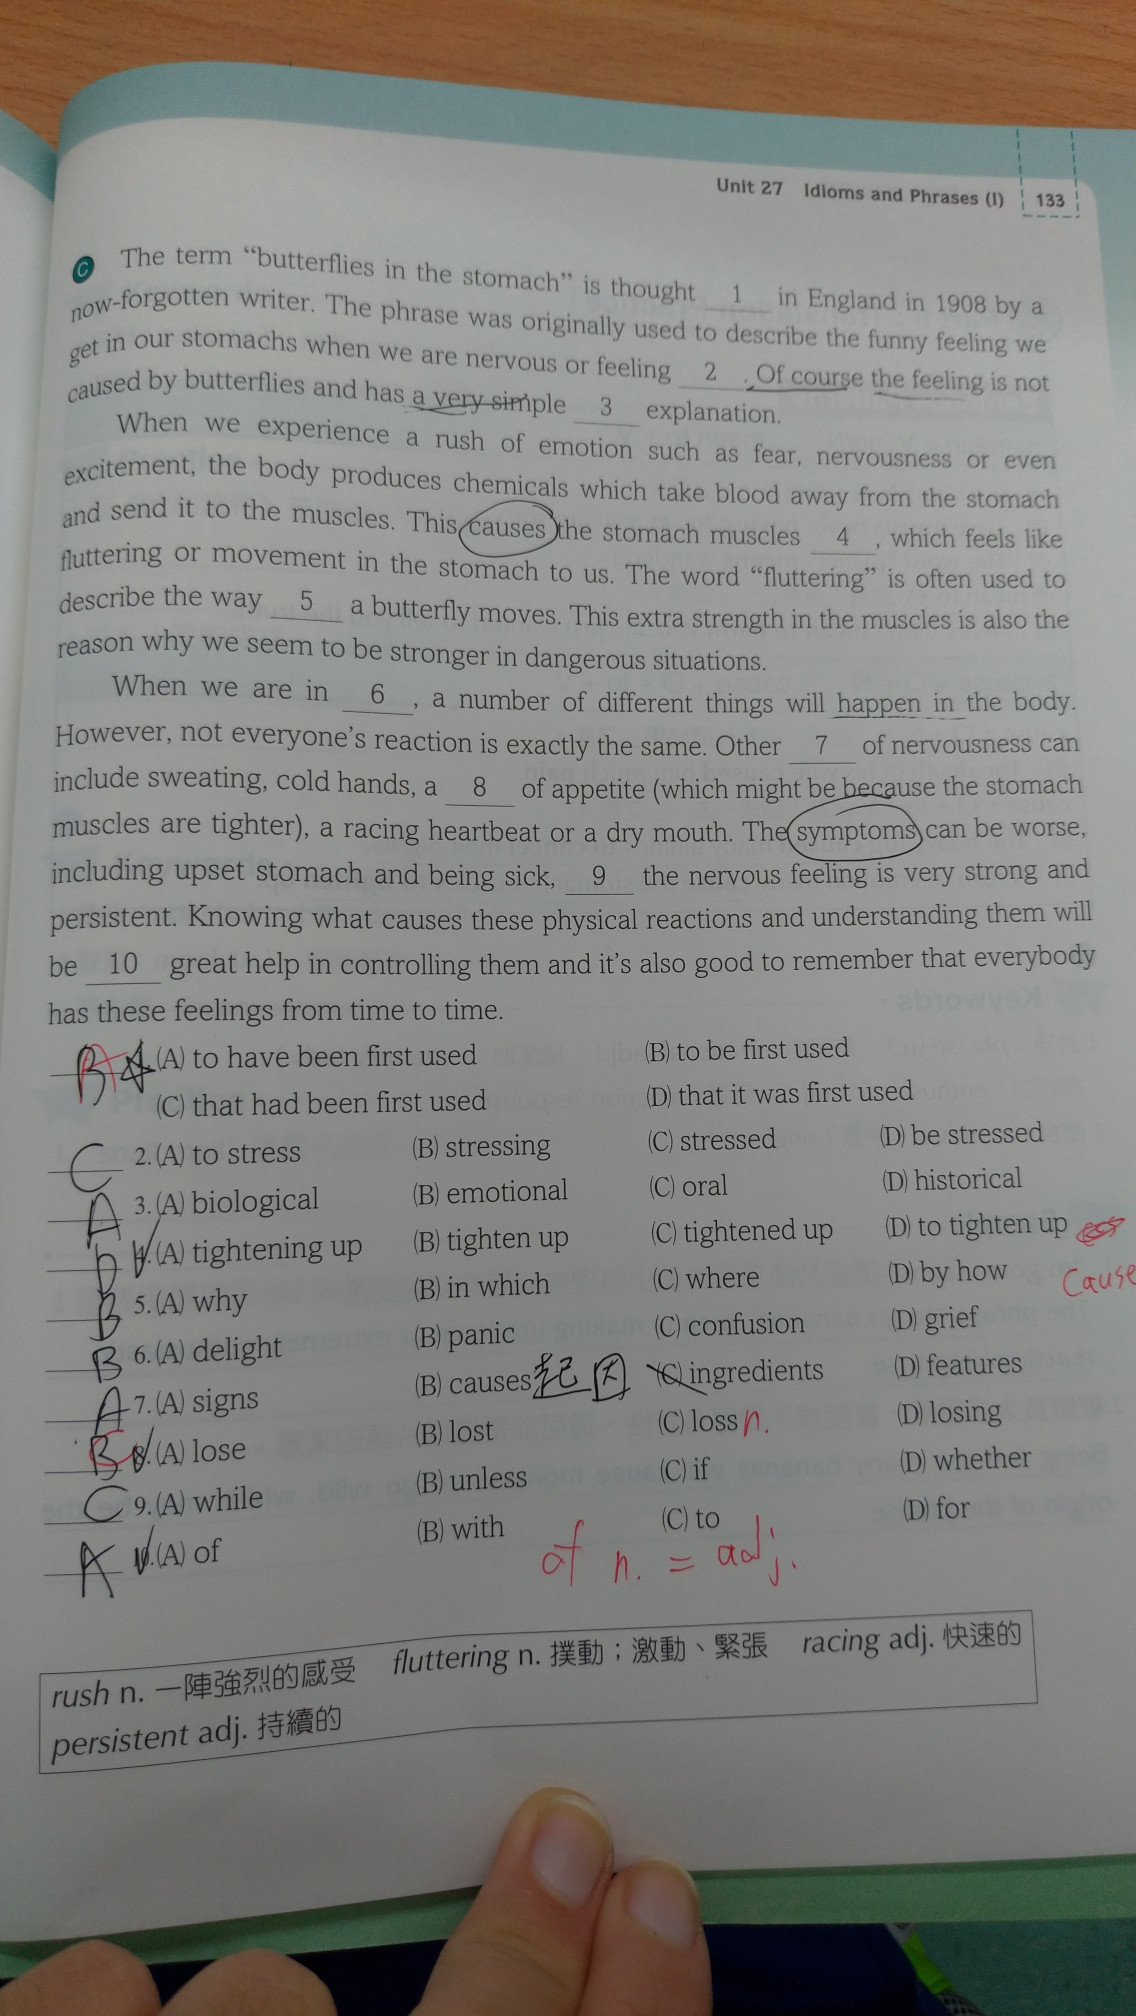 Unit 27 Idioms and Phrases (I) 133
C The term “butterflies in the stomach” is thought 1 in England in 1908 by a
now-forgotten writer. The phrase was originally used to describe the funny feeling we
get in our stomachs when we are nervous or feeling 2 . Of course the feeling is not
caused by butterflies and has a very simple 3 explanation.
When we experience a rush of emotion such as fear, nervousness or even
excitement, the body produces chemicals which take blood away from the stomach
and send it to the muscles. This causes the stomach muscles 4 , which feels like
fluttering or movement in the stomach to us. The word “fluttering” is often used to
describe the way 5 a butterfly moves. This extra strength in the muscles is also the
reason why we seem to be stronger in dangerous situations.
When we are in 6 , a number of different things will happen in the body.
However, not everyone’s reaction is exactly the same. Other 7 of nervousness can
include sweating, cold hands, a 8 of appetite (which might be because the stomach
muscles are tighter), a racing heartbeat or a dry mouth. The symptoms can be worse,
including upset stomach and being sick, 9 the nervous feeling is very strong and
persistent. Knowing what causes these physical reactions and understanding them will
be 10 great help in controlling them and it’s also good to remember that everybody
has these feelings from time to time.
(A) to have been first used (B) to be first used
(C) that had been first used (D) that it was first used
C 2. (A) to stress (B) stressing (C) stressed (D) be stressed
A 3. (A) biological (B) emotional (C) oral (D) historical
D 4. (A) tightening up (B) tighten up (C) tightened up (D) to tighten up
Cause
B 5. (A) why (B) in which (C) where (D) by how
B 6. (A) delight (B) panic (C) confusion (D) grief
A 7. (A) signs (B) causes 起因 (C) ingredients (D) features
8. (A) lose (B) lost (C) loss n. (D) losing
C 9. (A) while (B) unless (C) if (D) whether
A 10. (A) of (B) with (C) to (D) for
of n. = adj.
rush n. 一陣強烈的感受 fluttering n. 撲動；激動、緊張 racing adj. 快速的
persistent adj. 持續的